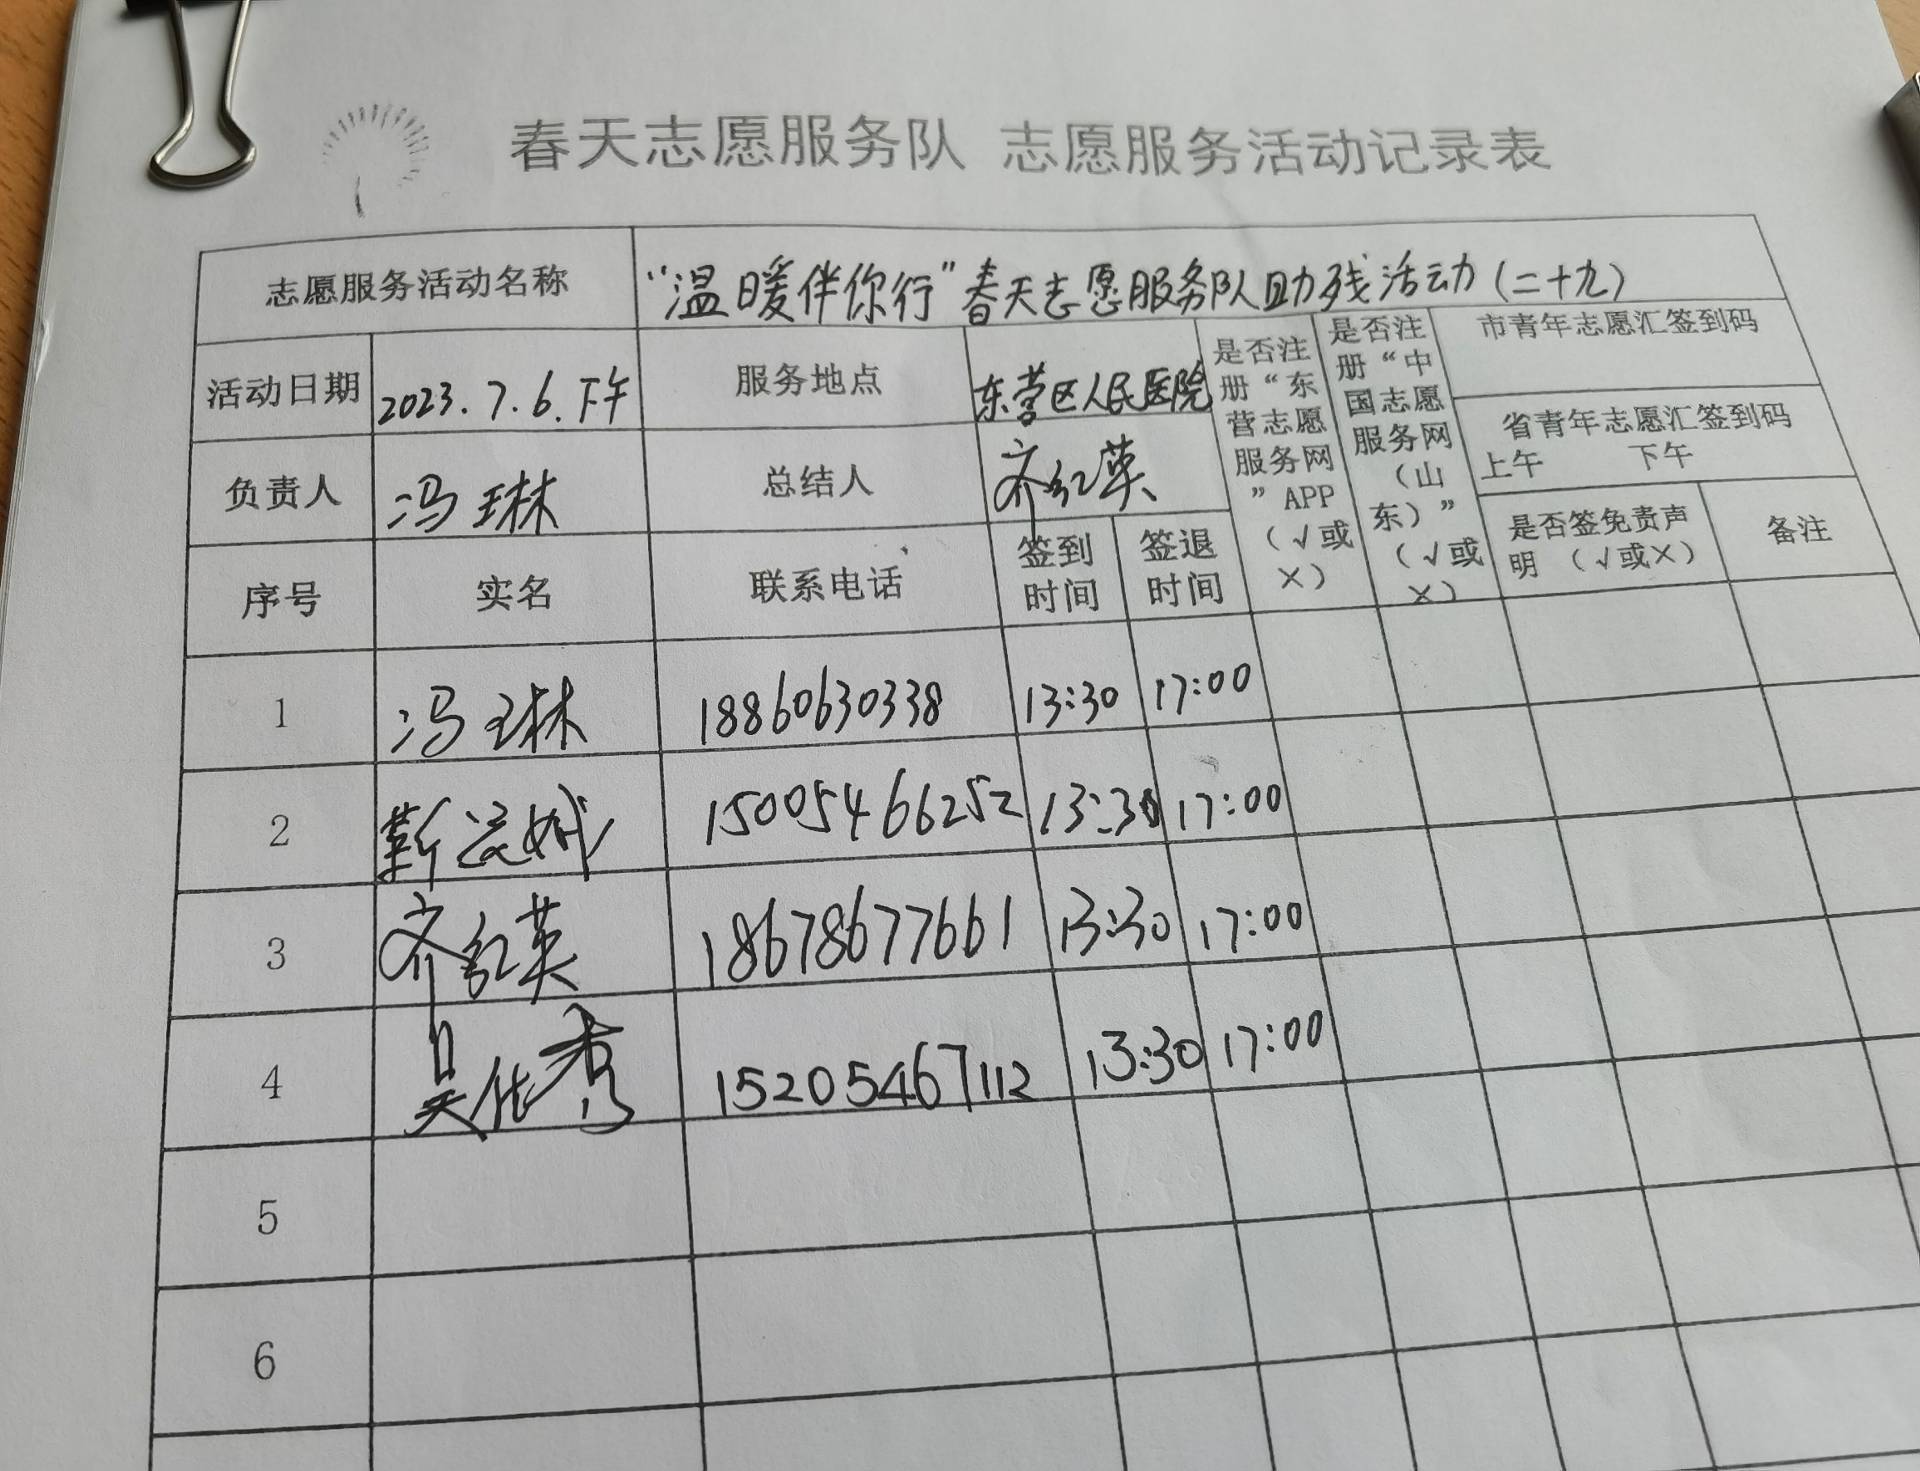 春天志愿服务队 志愿服务活动记录表
志愿服务活动名称 “温暖伴你行”春天志愿服务队助残活动(二十九)
活动日期 2023.7.6.下午 服务地点 东营区人民医院
负责人 冯琳 总结人 齐红英
是否注
册“东
营志愿
服务网
”APP
(√或
×)
是否注
册“中
国志愿
服务网
(山
东)”
(√或
×)
市青年志愿汇签到码
省青年志愿汇签到码
上午 下午
是否签免责声
明 (√或×)
备注
序号 实名 联系电话 签到
时间 签退
时间
1 冯琳 18860630338 13:30 17:00
2 靳 15005466252 13:30 17:00
3 齐红英 18678677661 13:30 17:00
4 吴依秀 15205467112 13:30 17:00
5
6